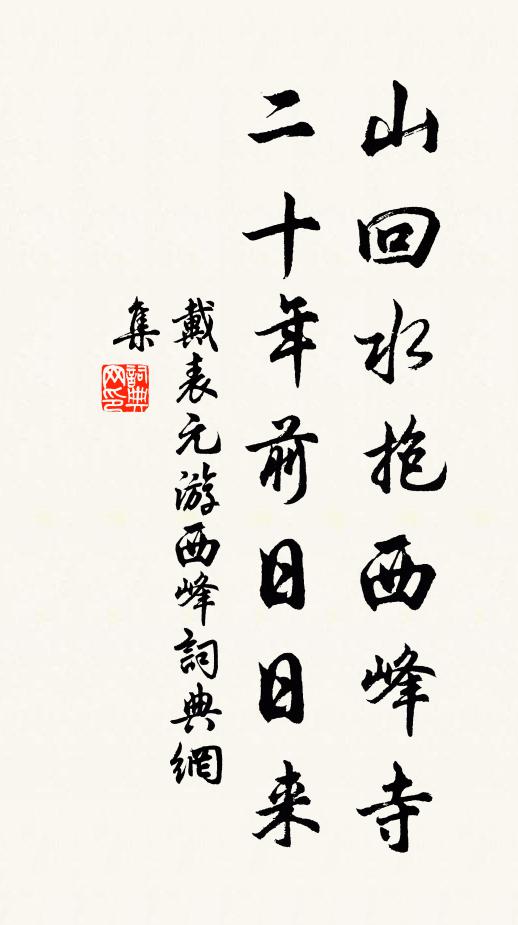 山回水抱西峰寺
二十年前日日来
戴表元游西峰詞典網
集
詞典网印